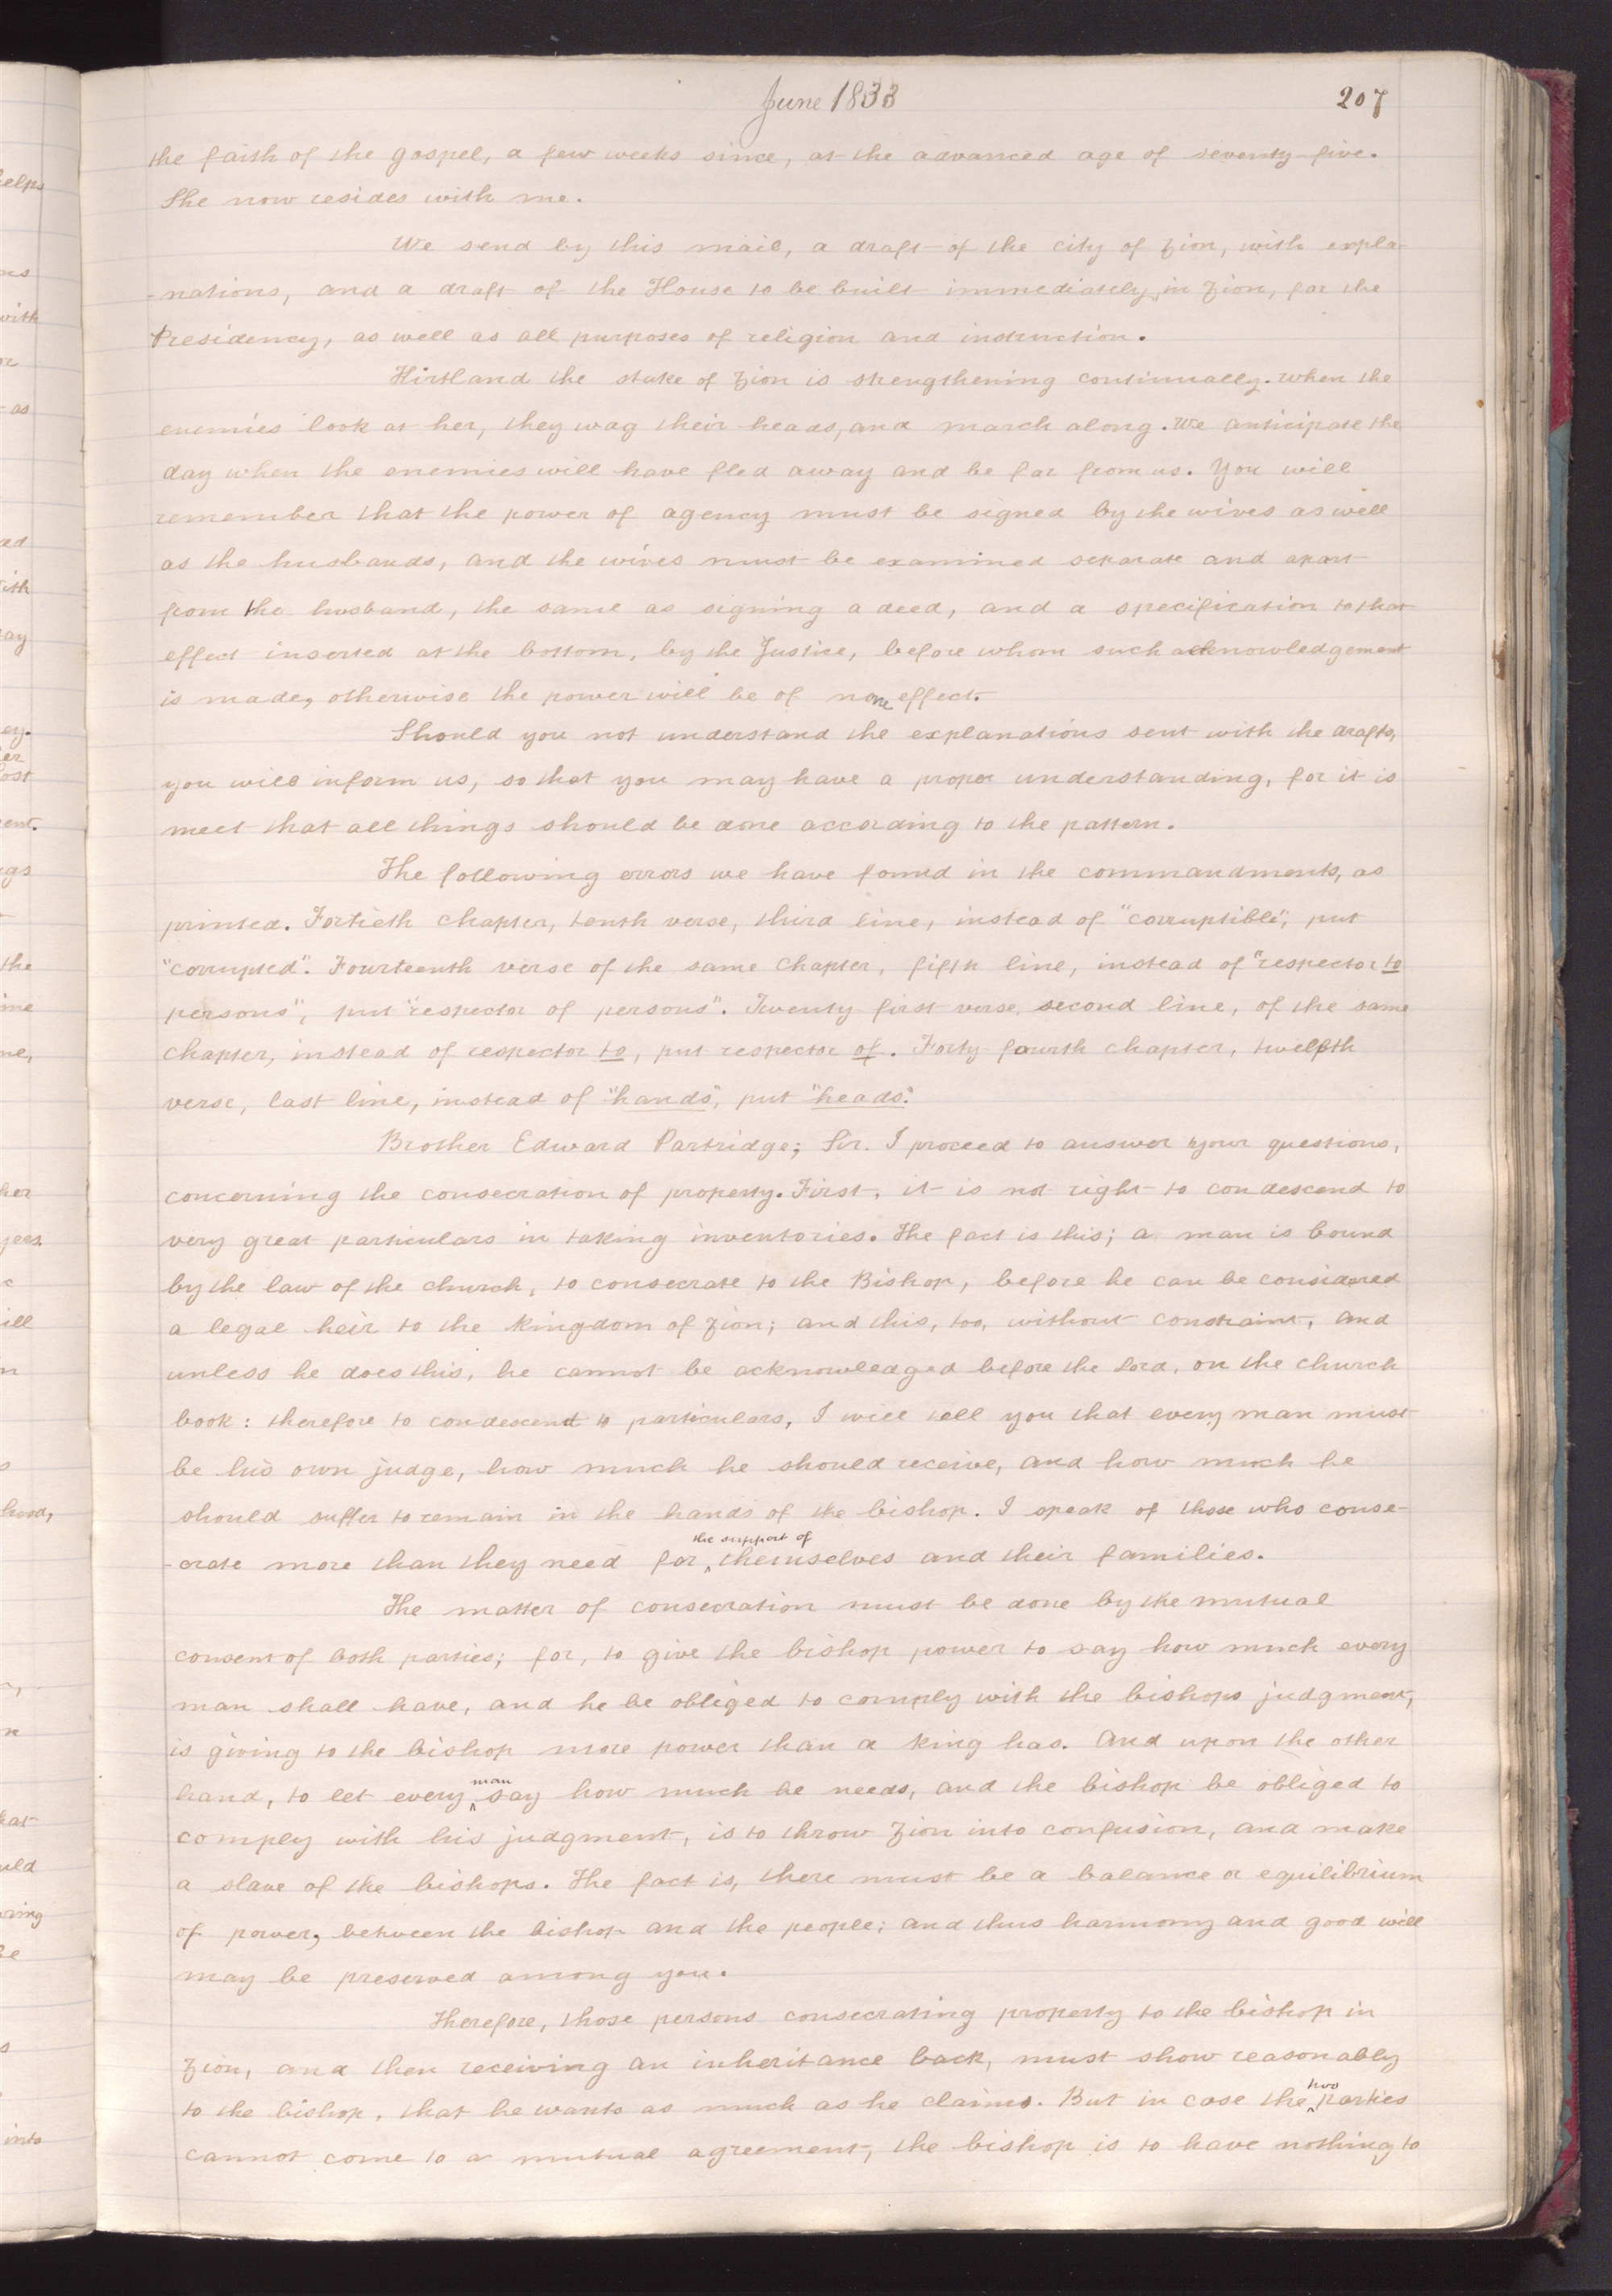 June 1833
207
the faith of the gospel, a few weeks since, at the advanced age of seventy-five.
She now resides with me.
We send by this mail, a draft of the city of Zion, with expla-
-nations, and a draft of the House to be built immediately, in Zion, for the
Presidency, as well as all purposes of religion and instruction.
Kirtland the stake of Zion is strengthening continually. When the
enemies look at her, they wag their heads, and march along. We anticipate the
day when the enemies will have fled away and be far from us. You will
remember that the power of agency must be signed by the wives as well
as the husbands, and the wives must be examined separate and apart
from the husband, the same as signing a deed, and a specification to that
effect inserted at the bottom, by the Justice, before whom such acknowledgement
is made, otherwise the power will be of none effect.
Should you not understand the explanations sent with the drafts,
you will inform us, so that you may have a proper understanding, for it is
meet that all things should be done according to the pattern.
The following errors we have found in the commandments, as
printed. Fortieth chapter, tenth verse, third line, instead of "corruptible", put
"corrupted". Fourteenth verse of the same chapter, fifth line, instead of "respector to
persons", put "respector of persons". Twenty first verse, second line, of the same
chapter, instead of respector to, put respector of. Forty fourth chapter, twelfth
verse, last line, instead of "hands", put "heads".
Brother Edward Partridge; Sir. I proceed to answer your questions,
concerning the consecration of property. First, it is not right to condescend to
very great particulars in taking inventories. The fact is this; a man is bound
by the law of the church, to consecrate to the Bishop, before he can be considered
a legal heir to the kingdom of Zion; and this, too, without constraint, and
unless he does this, he cannot be acknowledged before the Lord, on the church
book: therefore to condescend to particulars, I will tell you that every man must
be his own judge, how much he should receive, and how much he
should suffer to remain in the hands of the bishop. I speak of those who conse-
the support of
-crate more than they need for ^ themselves and their families.
The matter of consecration must be done by the mutual
consent of both parties; for, to give the bishop power to say how much every
man shall have, and he be obliged to comply with the bishops judgment,
is giving to the bishop more power than a king has. And upon the other
man
hand, to let every ^ say how much he needs, and the bishop be obliged to
comply with his judgment, is to throw Zion into confusion, and make
a slave of the bishops. The fact is, there must be a balance or equilibrium
of power, between the bishop and the people; and thus harmony and good will
may be preserved among you.
Therefore, those persons consecrating property to the bishop in
Zion, and then receiving an inheritance back, must show reasonably
two
to the bishop, that he wants as much as he claims. But in case the ^ parties
cannot come to a mutual agreement, the bishop is to have nothing to